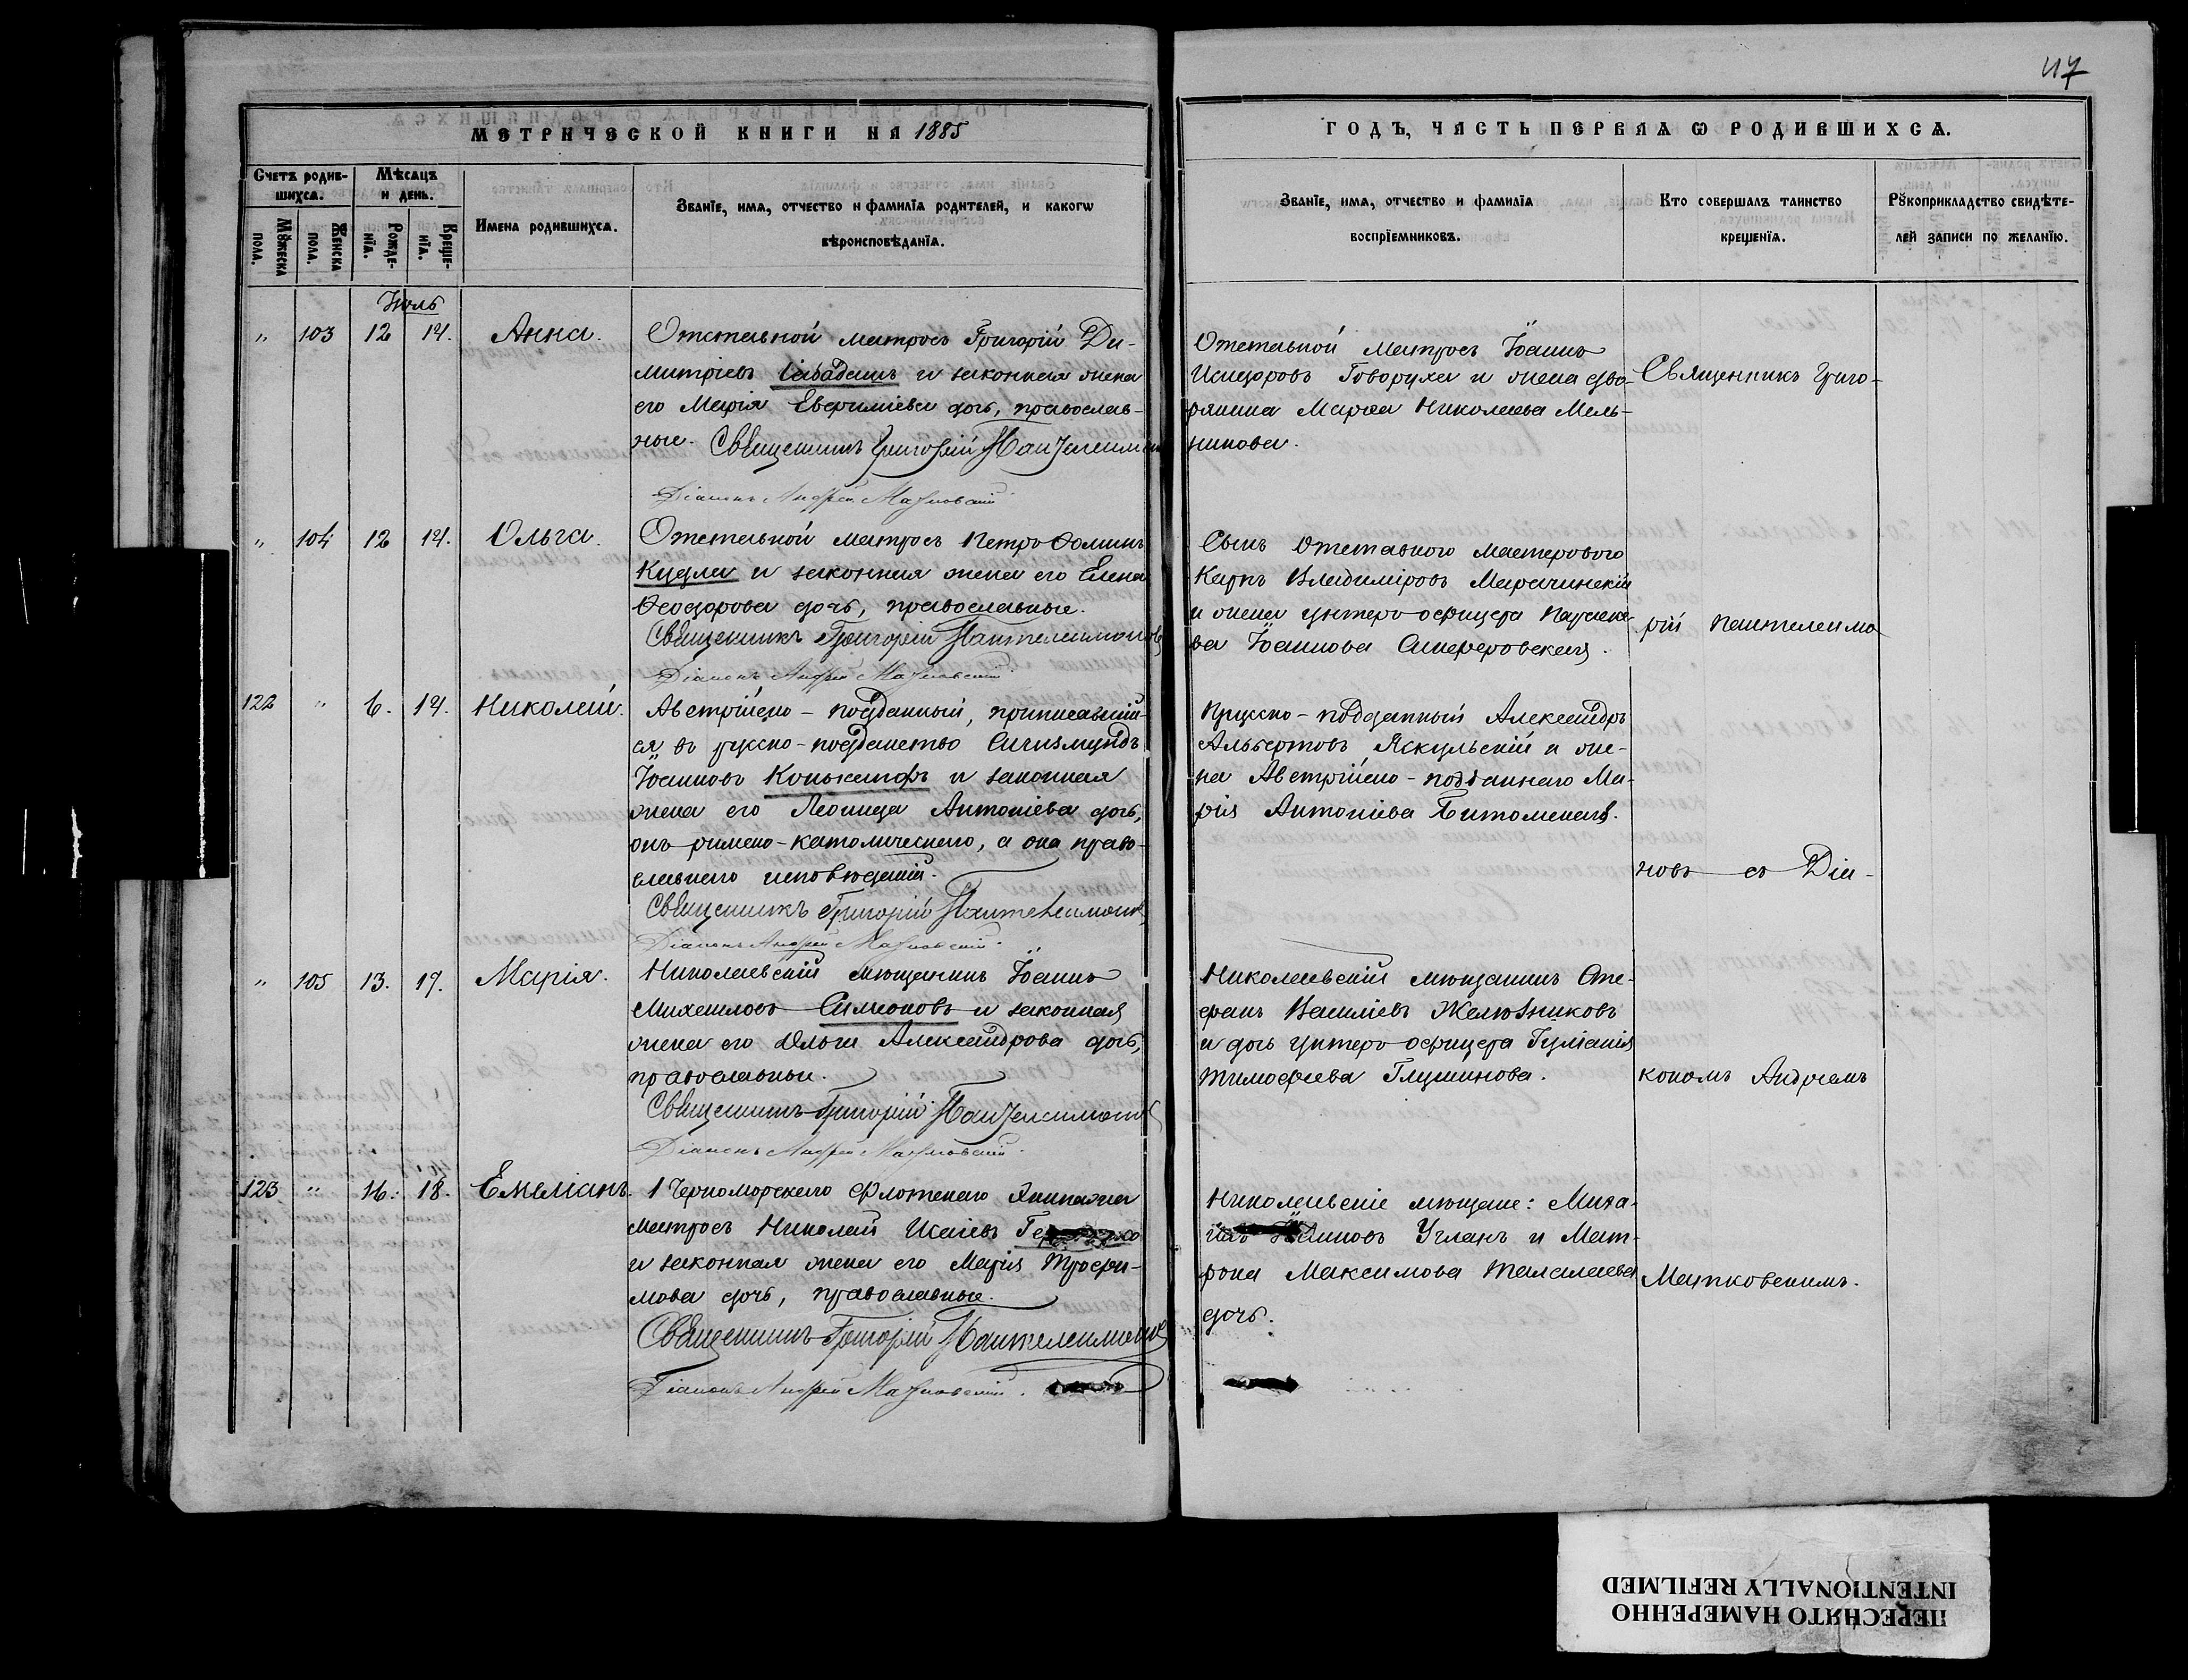 47
МЕТРИЧЕСКОЙ КНИГИ НА 1885
Счетъ родив-
шихсѧ.
Мѣсѧцъ
и день.
Мꙋжеска
пола.
Женска
пола.
Рожде-
нїѧ.
Креще-
нїѧ.
Имена родившихсѧ.
Званїе, имѧ, отчество и фамилїѧ родителей, и какогѡ
вѣроисповѣданїѧ.
Іюль
„ 103 12 14. Анна.
Отставной матросъ Григорій Ди-
митріевъ и законная жена
его Марія Евфиміева дочь, православ-
ные. Священникъ Григорій Пантелеимон
Діаконъ Андрей
„ 104 12 14. Ольга.
Отставной матросъ Петръ Ѳоминъ
Кудла и законная жена его Елена
Ѳеодорова дочь, православные.
Священникъ Григорій Пантелеимоновъ
Діаконъ Андрей
122 „ 6. 14. Николай.
Австрійско-подданный, приписавшій-
ся въ русско-подданство Сигизмундъ
Іоанновъ и законная
жена его Леонида Антоніева дочь,
онъ римско-католическаго, а она право-
славнаго исповѣданій.
Священникъ Григорій Пантелеимоновъ
Діаконъ Андрей
„ 105 13. 17. Марія.
Николаевскій мѣщанинъ Іоаннъ
Михаиловъ Симоновъ и законная
жена его Ольга Александрова дочь,
православные.
Священникъ Григорій Пантелеимоновъ
Діаконъ Андрей
123 „ 16. 18. Емеліанъ.
1 Черноморскаго Флотскаго Экипажа
матросъ Николай Исаіевъ
и законная жена его Марія Трофи-
мова дочь, православные.
Священникъ Григорій Пантелеимоновъ
Діаконъ Андрей
ГОДЪ, ЧАСТЬ ПЕРВАѦ Ѡ РОДИВШИХСѦ.
Званїе, имѧ, отчество и фамилїѧ
воспрїемниковъ.
Кто совершалъ таинство
крещенїѧ.
Рꙋкоприкладство свидѣте-
лей записи по желанїю.
Отставной матросъ Іоаннъ
Исидоровъ Говоруха и жена дво-
рянина Марѳа Николаева Мель-
никова.
Сынъ отставного мастерового
Карпъ Владиміровъ Марачинскій
и жена унтеръ-офицера Параске-
ва Іоаннова
Прусско-подданный Александръ
Альбертовъ Яскульскій и же-
на Австрійско-подданнаго Ма-
рія Антоніева
Николаевскій мѣщанинъ Сте-
фанъ Василіевъ Желѣзниковъ
и дочь унтеръ-офицера Іуліанія
Тимофеева Глушикова.
Николаевскіе мѣщане: Миха-
илъ Іоанновъ Угланъ и Мат-
рона Максимова Талалаева
дочь.
Священникъ Григо-
рій Пантелеимо
новъ съ Діа-
кономъ Андреемъ
ПЕРЕСНЯТО НАМЕРЕННО
INTENTIONALLY REFILMED